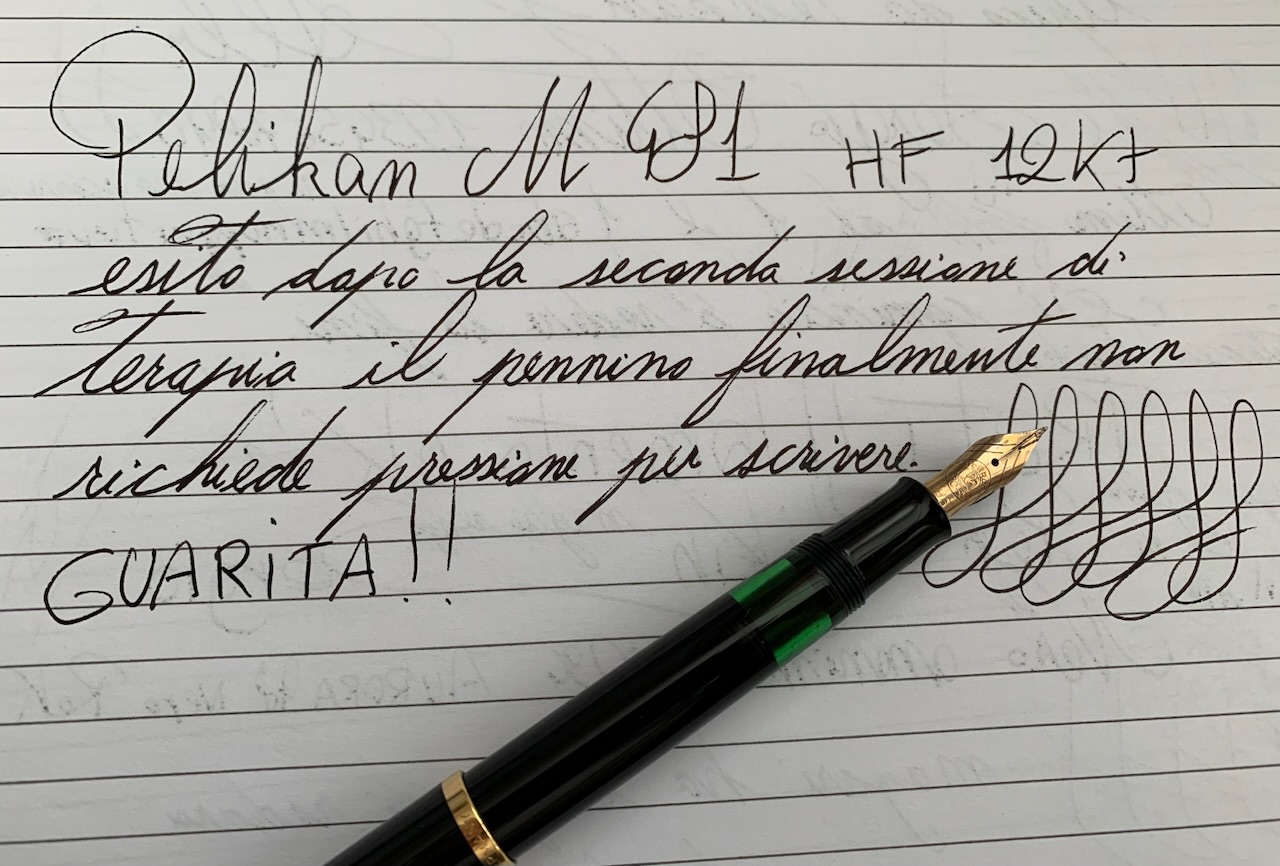 Pelikan M 481 HF 12Kt
esito dopo la seconda sessione di
terapia il pennino finalmente non
richiede pressione per scrivere.
GUARITA!!
AURORA